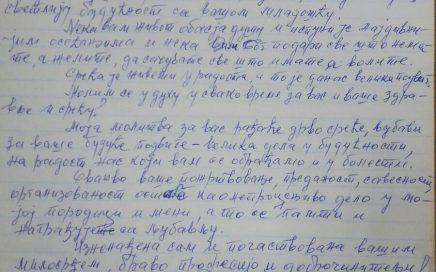 светлију будућност са вашом младошћу.
Нека вам живот обасја душу и испуни је најдивни-
јим осећањима и нека вам Бог подари све што нема-
те, а желите, да сачувате све што имате а волите.
Срећа је живети у радости, и то је данас велики подвиг.
Молим се у духу у свако време за вас и ваше здра-
вље и срећу!
Моја молитва за вас рађаће дрво среће, љубави
за ваше будуће подвиге - велика дела у будућности,
на радост нас који вам се обраћамо и у болести.
Свакво ваше пожртвовање, преданост, савесност,
организованост неопстручено дело у мо-
јој породици и мени, а то се памти и
са љубављу.
Изненађена сам и почаствована вашим
милосрђем, браво професијо и доброчинитељи!